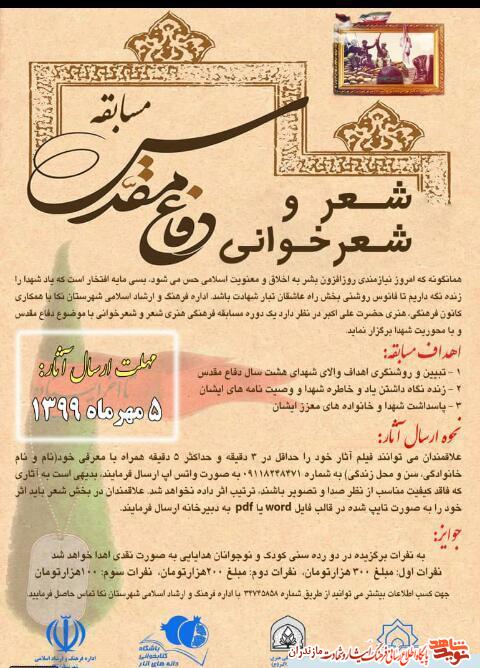 مسابقه
دفاع مقدس
شعر و
شعرخوانی
همانگونه که امروز نیازمندی روزافزون بشر به اخلاق و معنویت اسلامی حس می شود، بسی مایه افتخار است که یاد شهدا را
زنده نگه داریم تا فانوس روشنی بخش راه عاشقان تبار شهادت باشد. اداره فرهنگ و ارشاد اسلامی شهرستان نکا با همکاری
کانون فرهنگی، هنری حضرت علی اکبر در نظر دارد یک دوره مسابقه فرهنگی هنری شعر و شعرخوانی با موضوع دفاع مقدس
و با محوریت شهدا برگزار نماید.
اهداف مسابقه:
۱ - تبیین و روشنگری اهداف والای شهدای هشت سال دفاع مقدس
۲ - زنده نگاه داشتن یاد و خاطره شهدا و وصیت نامه های ایشان
۳ - پاسداشت شهدا و خانواده های معزز ایشان
مهلت ارسال آثار:
۵ مهرماه ۱۳۹۹
نحوه ارسال آثار:
علاقمندان می توانند فیلم آثار خود را حداقل در ۳ دقیقه و حداکثر ۵ دقیقه همراه با معرفی خود(نام و نام
خانوادگی، سن و محل زندگی) به شماره ۰۹۱۱۸۲۴۸۴۷۱ به صورت واتس اپ ارسال فرمایند، بدیهی است به آثاری
که فاقد کیفیت مناسب از نظر صدا و تصویر باشند، ترتیب اثر داده نخواهد شد. علاقمندان در بخش شعر باید اثر
خود را به صورت تایپ شده در قالب فایل word یا pdf به دبیرخانه ارسال فرمایند.
جوایز:
به نفرات برگزیده در دو رده سنی کودک و نوجوانان هدایایی به صورت نقدی اهدا خواهد شد
نفرات اول: مبلغ ۳۰۰ هزارتومان، نفرات دوم: مبلغ ۲۰۰هزارتومان، نفرات سوم: ۱۰۰هزارتومان
جهت کسب اطلاعات بیشتر می توانید از طریق شماره ۳۴۷۴۵۸۵۸ با اداره فرهنگ و ارشاد اسلامی شهرستان نکا تماس حاصل فرمایید
اداره فرهنگ و ارشاد اسلامی
باشگاه
کتابخوانی
دانه های انار
نوید شاهد
پایگاه اطلاع رسانی فرهنگ ایثار و شهادت مازندران